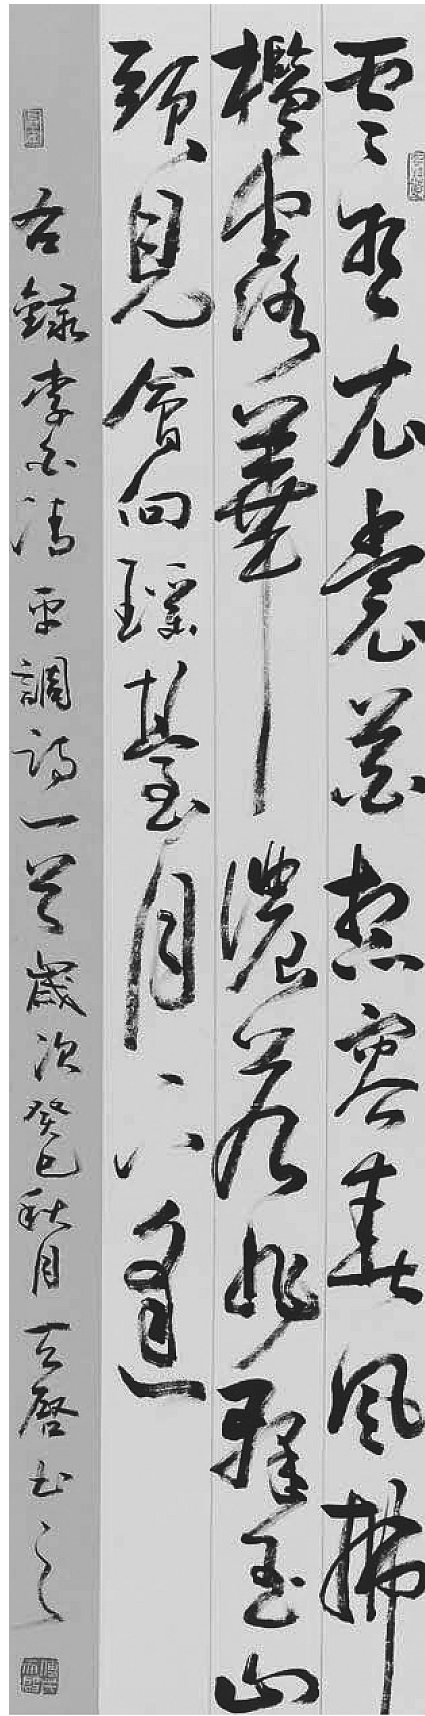 雲想衣裳花想容春風拂
檻露華濃若非群玉山
頭見會向瑤臺月下逢
右錄李白清平調詩一首歲次癸巳秋月啓書之